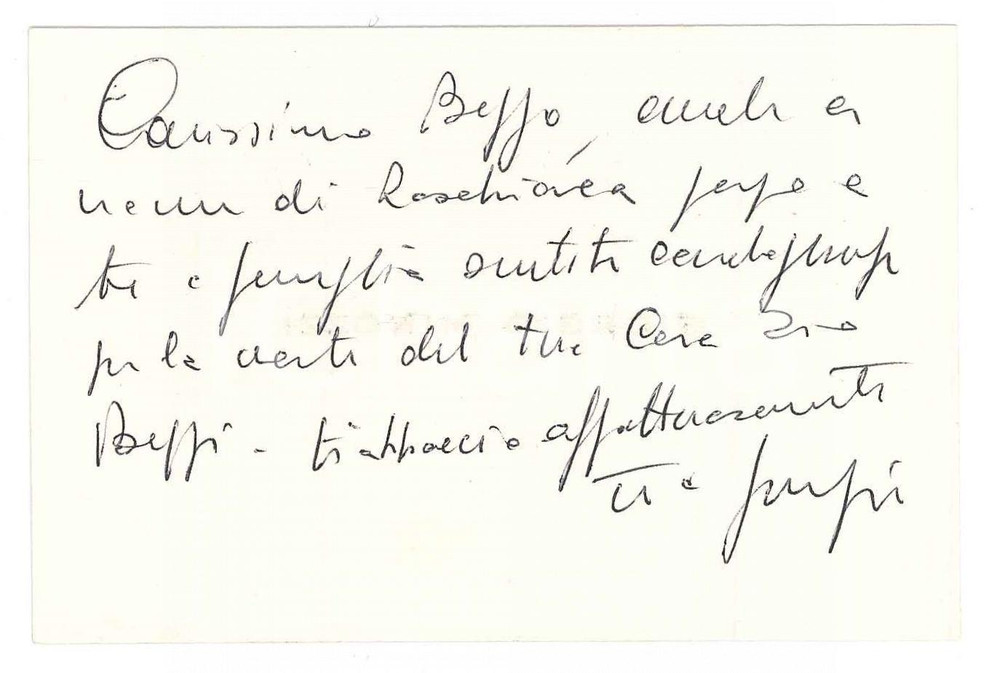 Carissimo Beppo, anche a
nome di porgo a
te e famiglia sentite condoglianze
per la morte del tuo caro zio
Beppi - ti abbraccio affettuosamente